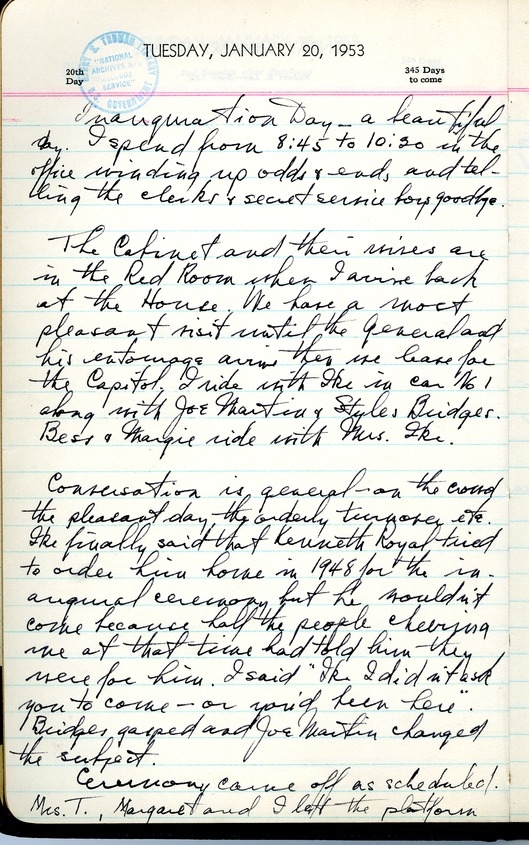 TUESDAY, JANUARY 20, 1953
20th
Day
345 Days
to come
HARRY S. TRUMAN LIBRARY
"NATIONAL
ARCHIVES AND
RECORDS
SERVICE"
U.S. GOVERNMENT
Inauguration Day – a beautiful
day. I spend from 8:45 to 10:30 in the
office winding up odds & ends and tel-
ling the clerks & secret service boys goodbye.
The Cabinet and their wives are
in the Red Room when I arrive back
at the House. We have a most
pleasant visit until the General and
his entourage arrive then we leave for
the Capitol. I ride with Ike in car No 1
along with Joe Martin & Styles Bridges.
Bess & Margie ride with Mrs. Ike.
Conversation is general – on the crowd
the pleasant day, the orderly turnover etc.
Ike finally said that Kenneth Royal tried
to order him home in 1948 for the in-
augural ceremony but he wouldn't
come because half the people cheering
me at that time had told him they
were for him. I said "Ike I didn't ask
you to come – or you'd been here".
Bridges gasped and Joe Martin changed
the subject.
Ceremony came off as scheduled.
Mrs. T., Margaret and I left the platform